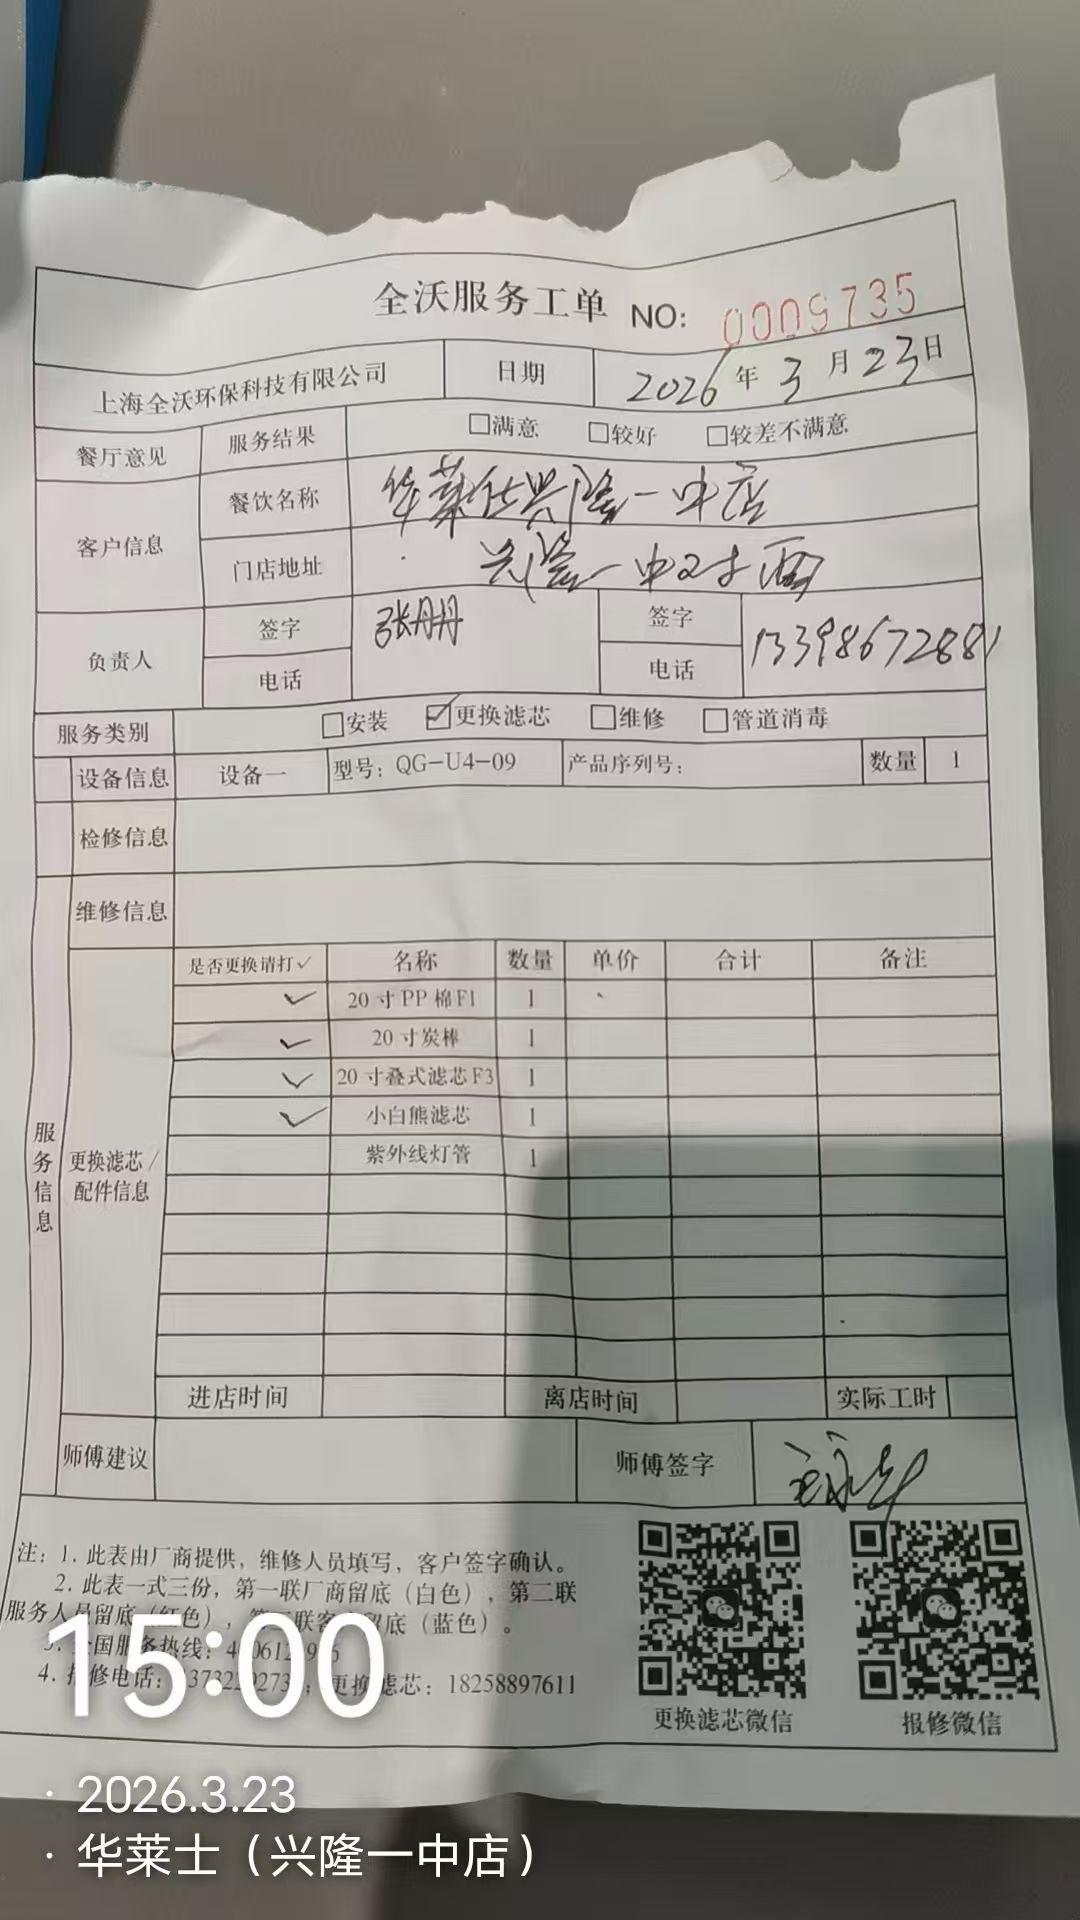 全沃服务工单 NO: 0009735
上海全沃环保科技有限公司 日期 2026年3月23日
餐厅意见 服务结果 □满意 □较好 □较差不满意
客户信息 餐饮名称 华莱仕兴隆一中店
门店地址 兴隆一中对面
负责人 签字 张丹丹 签字
电话 电话 13398672881
服务类别 □安装 ☑更换滤芯 □维修 □管道消毒
设备信息 设备一 型号:QG-U4-09 产品序列号: 数量 1
检修信息
维修信息
服务信息
更换滤芯/配件信息
是否更换请打✓ 名称 数量 单价 合计 备注
✓ 20寸PP棉F1 1
✓ 20寸炭棒 1
✓ 20寸叠式滤芯F3 1
✓ 小白熊滤芯 1
紫外线灯管 1
进店时间 离店时间 实际工时
师傅建议 师傅签字
注:1. 此表由厂商提供，维修人员填写，客户签字确认。
2. 此表一式三份，第一联厂商留底（白色），第二联
服务人员留底（红色），第三联客户留底（蓝色）。
3. 全国服务热线:
4. 报修电话: 更换滤芯: 18258897611
更换滤芯微信 报修微信
15:00
· 2026.3.23
· 华莱士（兴隆一中店）